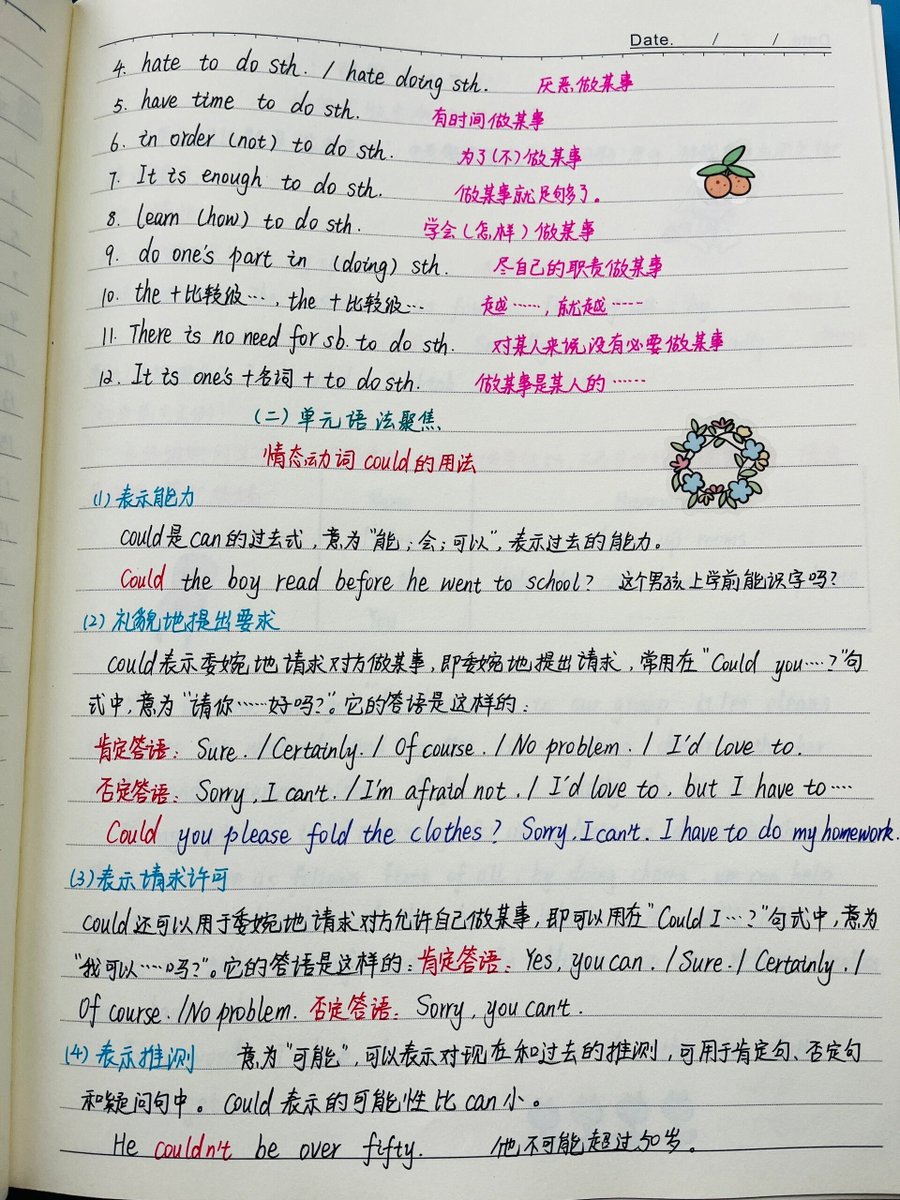 Date. / /
4. hate to do sth. / hate doing sth. 厌恶做某事
5. have time to do sth. 有时间做某事
6. in order (not) to do sth. 为了(不)做某事
7. It is enough to do sth. 做某事就足够了。
8. learn (how) to do sth. 学会(怎样)做某事
9. do one's part in (doing) sth. 尽自己的职责做某事
10. the +比较级…, the +比较级… 越……,就越……
11. There is no need for sb. to do sth. 对某人来说没有必要做某事
12. It is one's +名词 + to do sth. 做某事是某人的……
(二)单元语法聚焦
情态动词 could的用法
(1)表示能力
could是can的过去式,意为"能;会;可以",表示过去的能力。
Could the boy read before he went to school? 这个男孩上学前能识字吗?
(2)礼貌地提出要求
could表示委婉地请求对方做某事,即委婉地提出请求,常用在"Could you…?"句
式中,意为"请你……好吗?"。它的答语是这样的:
肯定答语: Sure. /Certainly. / Of course. / No problem. / I'd love to.
否定答语: Sorry, I can't. /I'm afraid not. / I'd love to, but I have to…
Could you please fold the clothes? Sorry, I can't. I have to do my homework.
(3)表示请求许可
could还可以用于委婉地请求对方允许自己做某事,即可以用在"Could I…?"句式中,意为
"我可以……吗?"。它的答语是这样的:肯定答语: Yes, you can. / Sure. / Certainly. /
Of course. /No problem. 否定答语: Sorry, you can't.
(4)表示推测 意为"可能",可以表示对现在和过去的推测,可用于肯定句、否定句
和疑问句中。could 表示的可能性比 can小。
He couldn't be over fifty. 他不可能超过50岁。